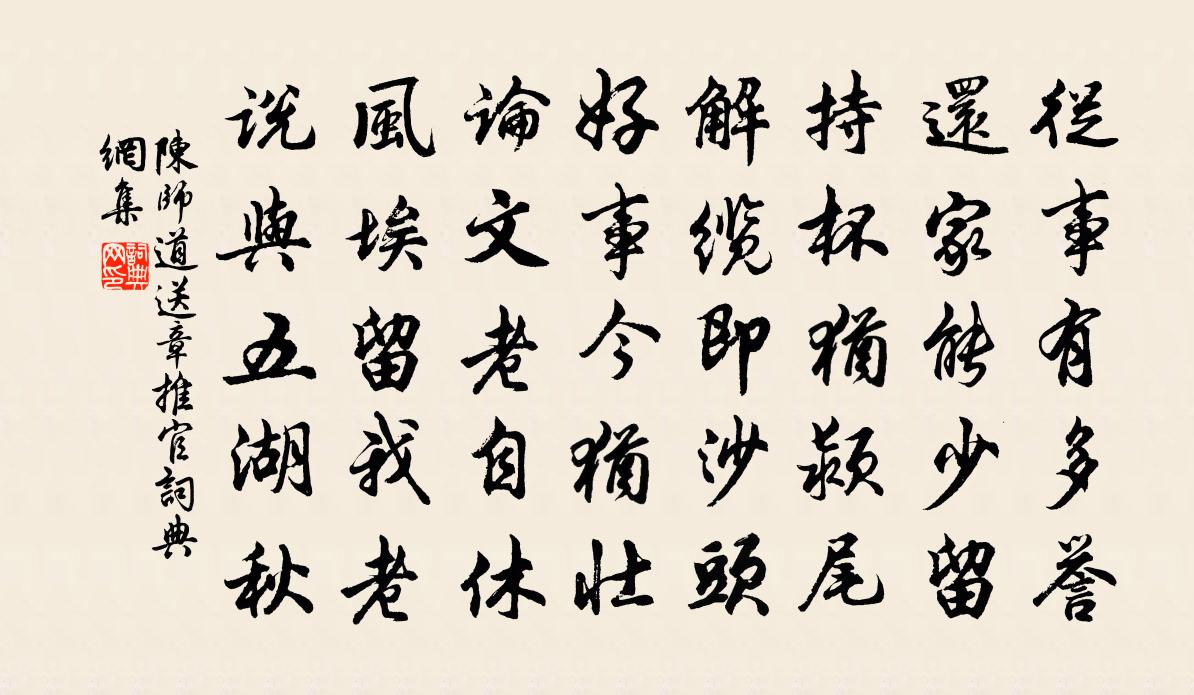 從事有多譽
還家能少留
持杯猶潁尾
解纜即沙頭
好事今猶壯
論文老自休
風埃留我老
說與五湖秋
陳師道送章推官詞典
網集
詞典
网印